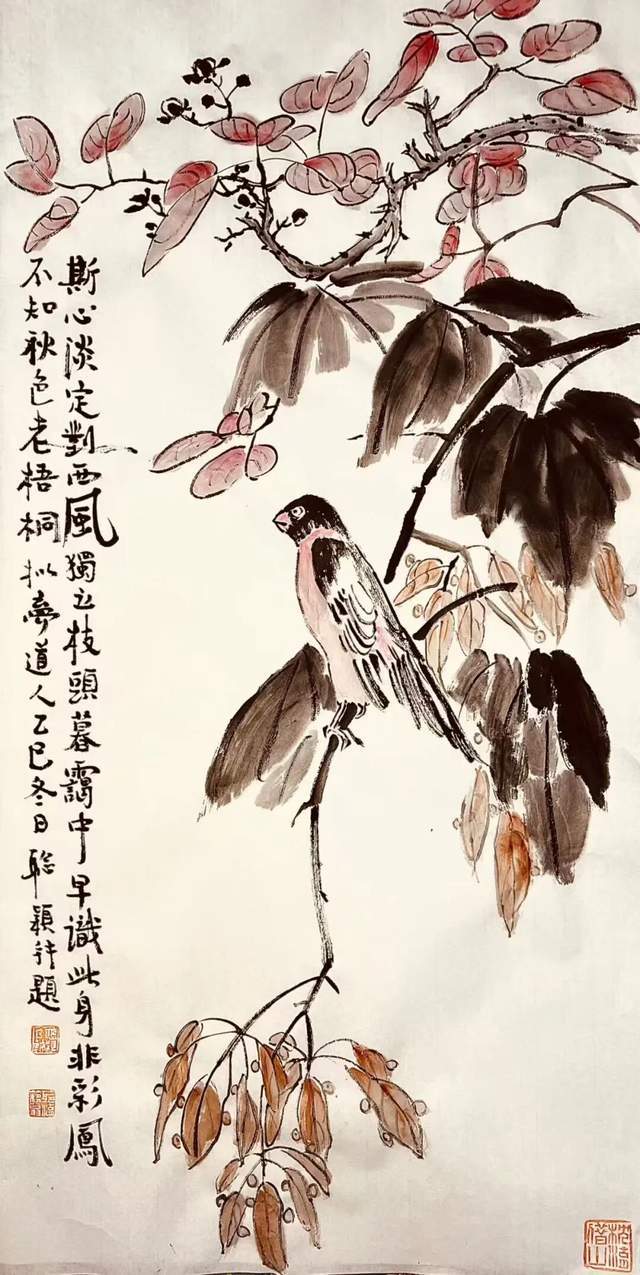 斯心淡定對西風獨立枝頭暮靄中早識此身非彩鳳
不知秋色老梧桐拟夢道人乙巳冬日聡穎并題